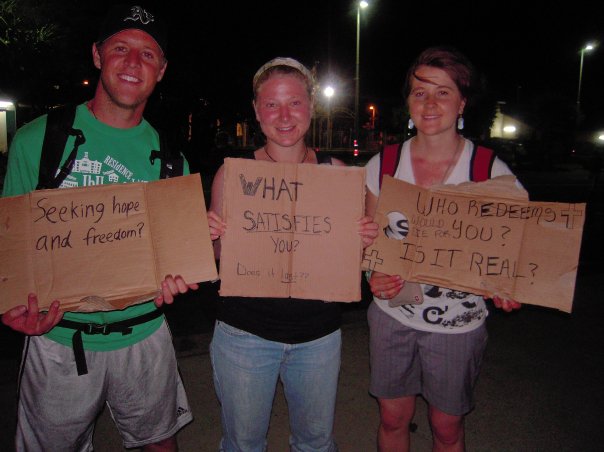 RESIDENCE
Seeking hope
and freedom?
WHAT
SATISFIES
YOU?
Does it last?
WHO REDEEMS
WOULD
DIE FOR YOU?
IS IT REAL?